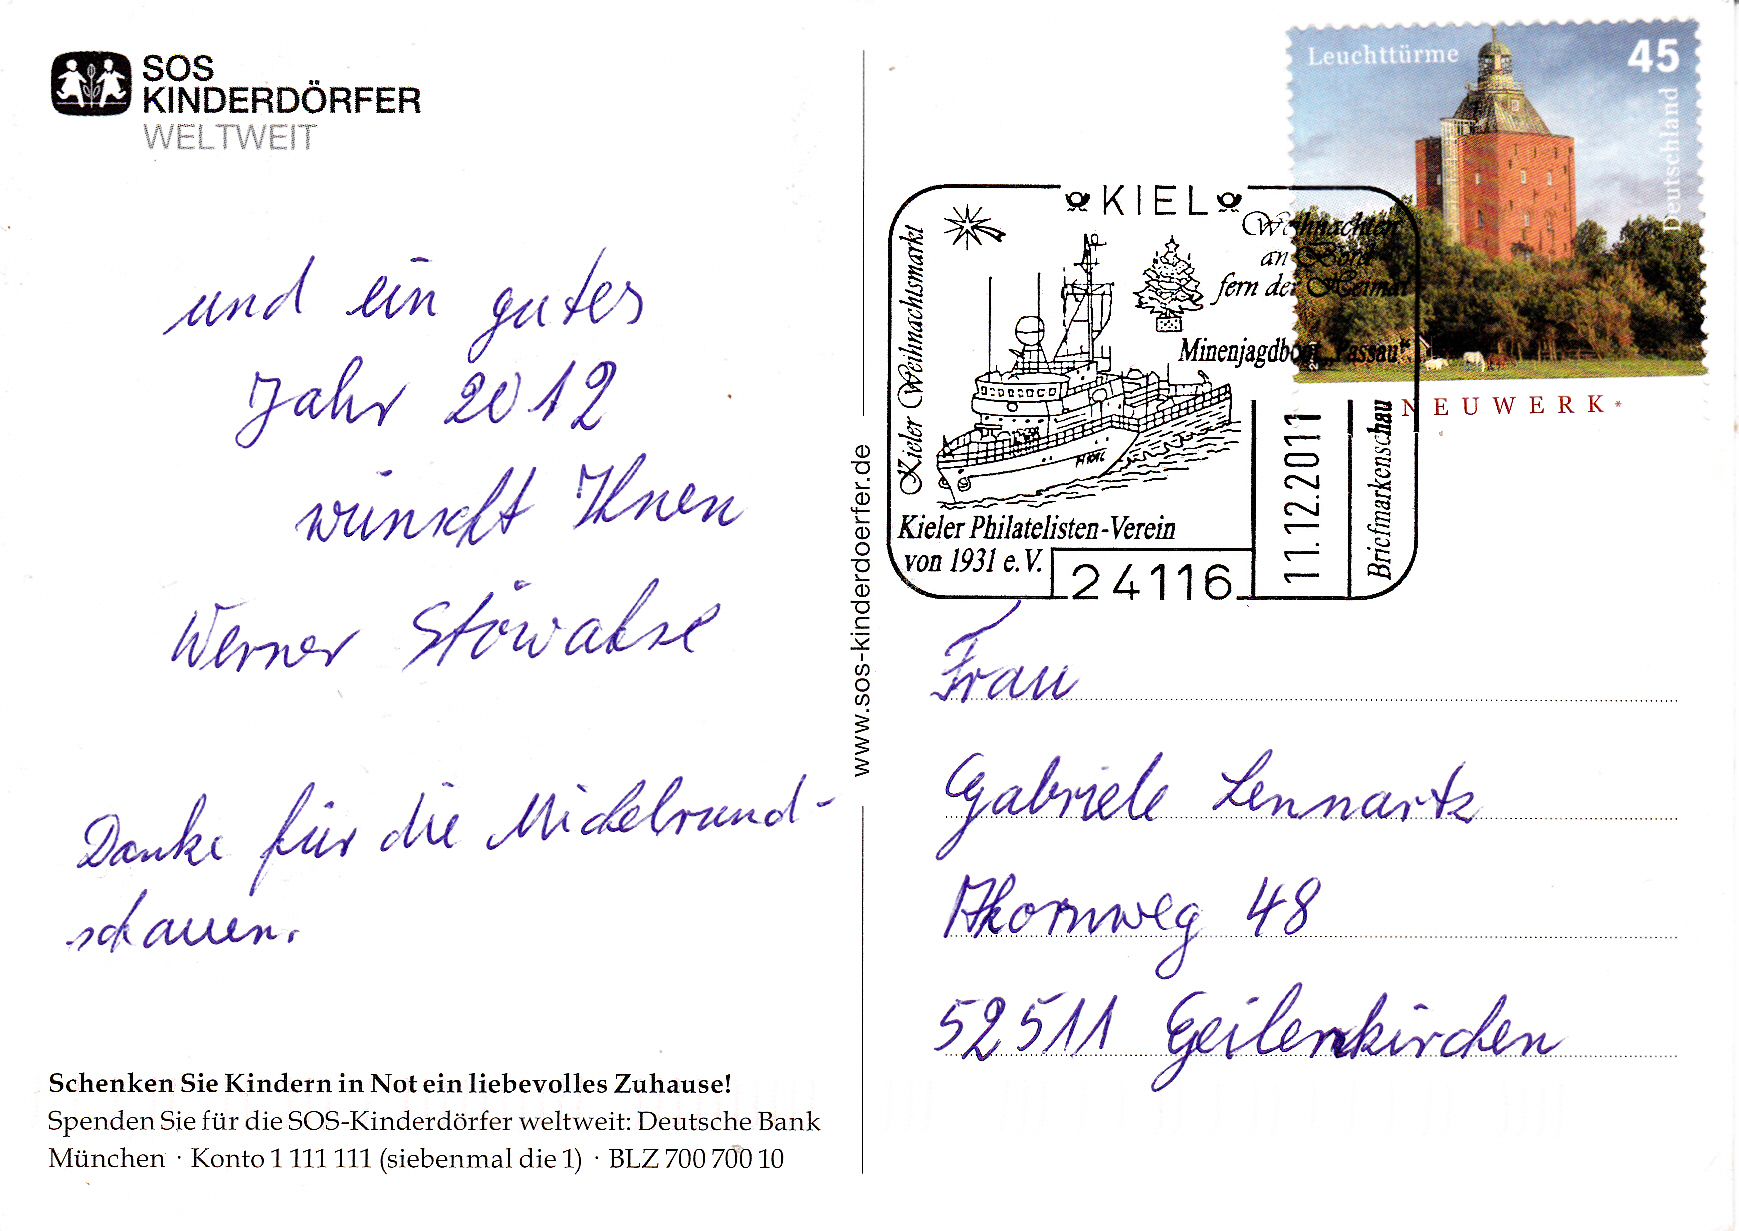 SOS
KINDERDÖRFER
WELTWEIT
und ein gutes
Jahr 2012
wünscht Ihnen
Werner
Danke für die Michelrund-
schauen.
Schenken Sie Kindern in Not ein liebevolles Zuhause!
Spenden Sie für die SOS-Kinderdörfer weltweit: Deutsche Bank
München · Konto 1 111 111 (siebenmal die 1) · BLZ 700 700 10
www.sos-kinderdoerfer.de
Leuchttürme 45
Deutschland
NEUWERK*
KIEL
Kieler Weihnachtsmarkt
Weihnachten
an Bord
fern der Heimat
Minenjagdboot „Passau“
Kieler Philatelisten-Verein
von 1931 e.V.
24116
11.12.2011
Briefmarkenschau
Frau
Gabriele Lennartz
Ahornweg 48
52511 Geilenkirchen